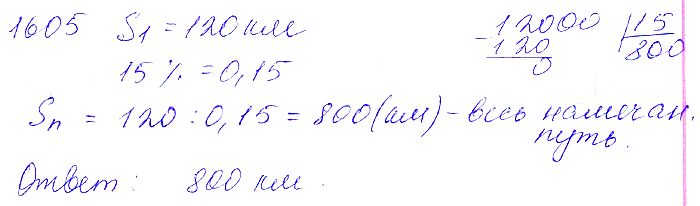 1605 S₁ = 120 км
15 % = 0,15
12000 | 15
- 120 800
0
Sп = 120 : 0,15 = 800 (км) - весь намечан.
путь.
Ответ: 800 км.